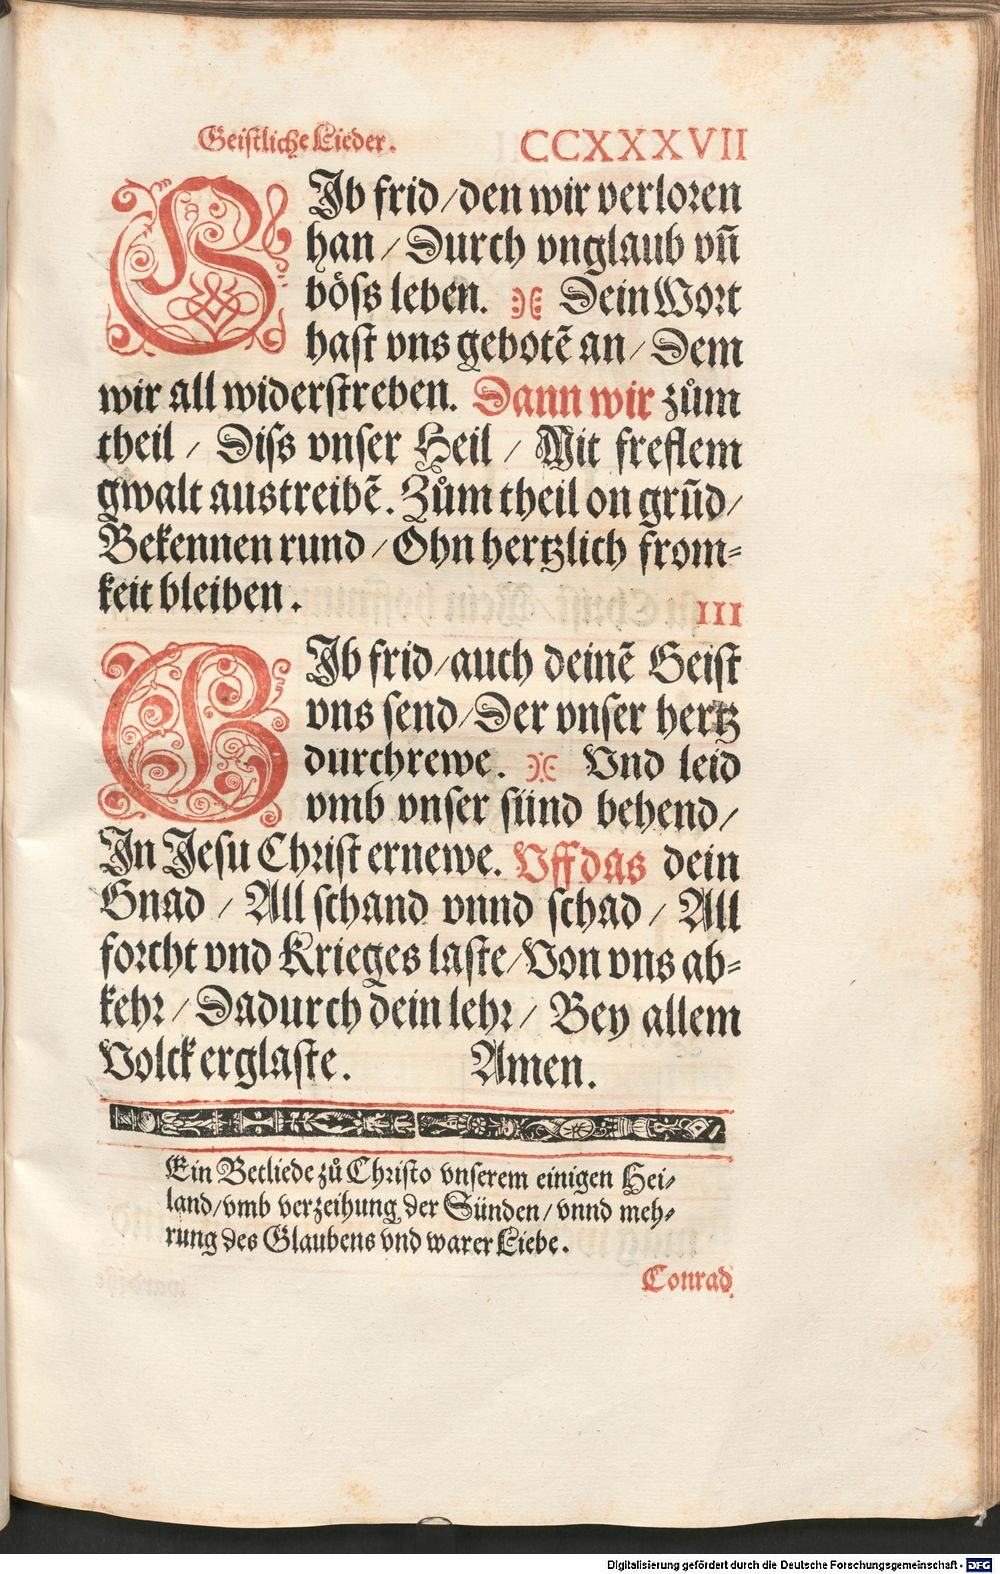 Geistliche Lieder. CCXXXVII
GIb frid / den wir verloren
han / Durch vnglaub vñ
böss leben. Dein Wort
hast vns gebotẽ an / Dem
wir all widerstreben. Dann wir zům
theil / Diss vnser Heil / Mit freflem
gwalt austreibẽ. Zům theil on grũd /
Bekennen rund / Ohn hertzlich from-
keit bleiben.
III
GIb frid / auch deinẽ Geist
vns send / Der vnser hertz
durchrewe. Vnd leid
vmb vnser sünd behend /
In Jesu Christ ernewe. Vff das dein
Gnad / All schand vnnd schad / All
forcht vnd Krieges laste / Von vns ab-
kehr / Dadurch dein lehr / Bey allem
Volck erglaste. Amen.
Ein Betliede zů Christo vnserem einigen Hei-
land / vmb verzeihung der Sünden / vnnd meh-
rung des Glaubens vnd warer Liebe.
Conrad
Digitalisierung gefördert durch die Deutsche Forschungsgemeinschaft - DFG